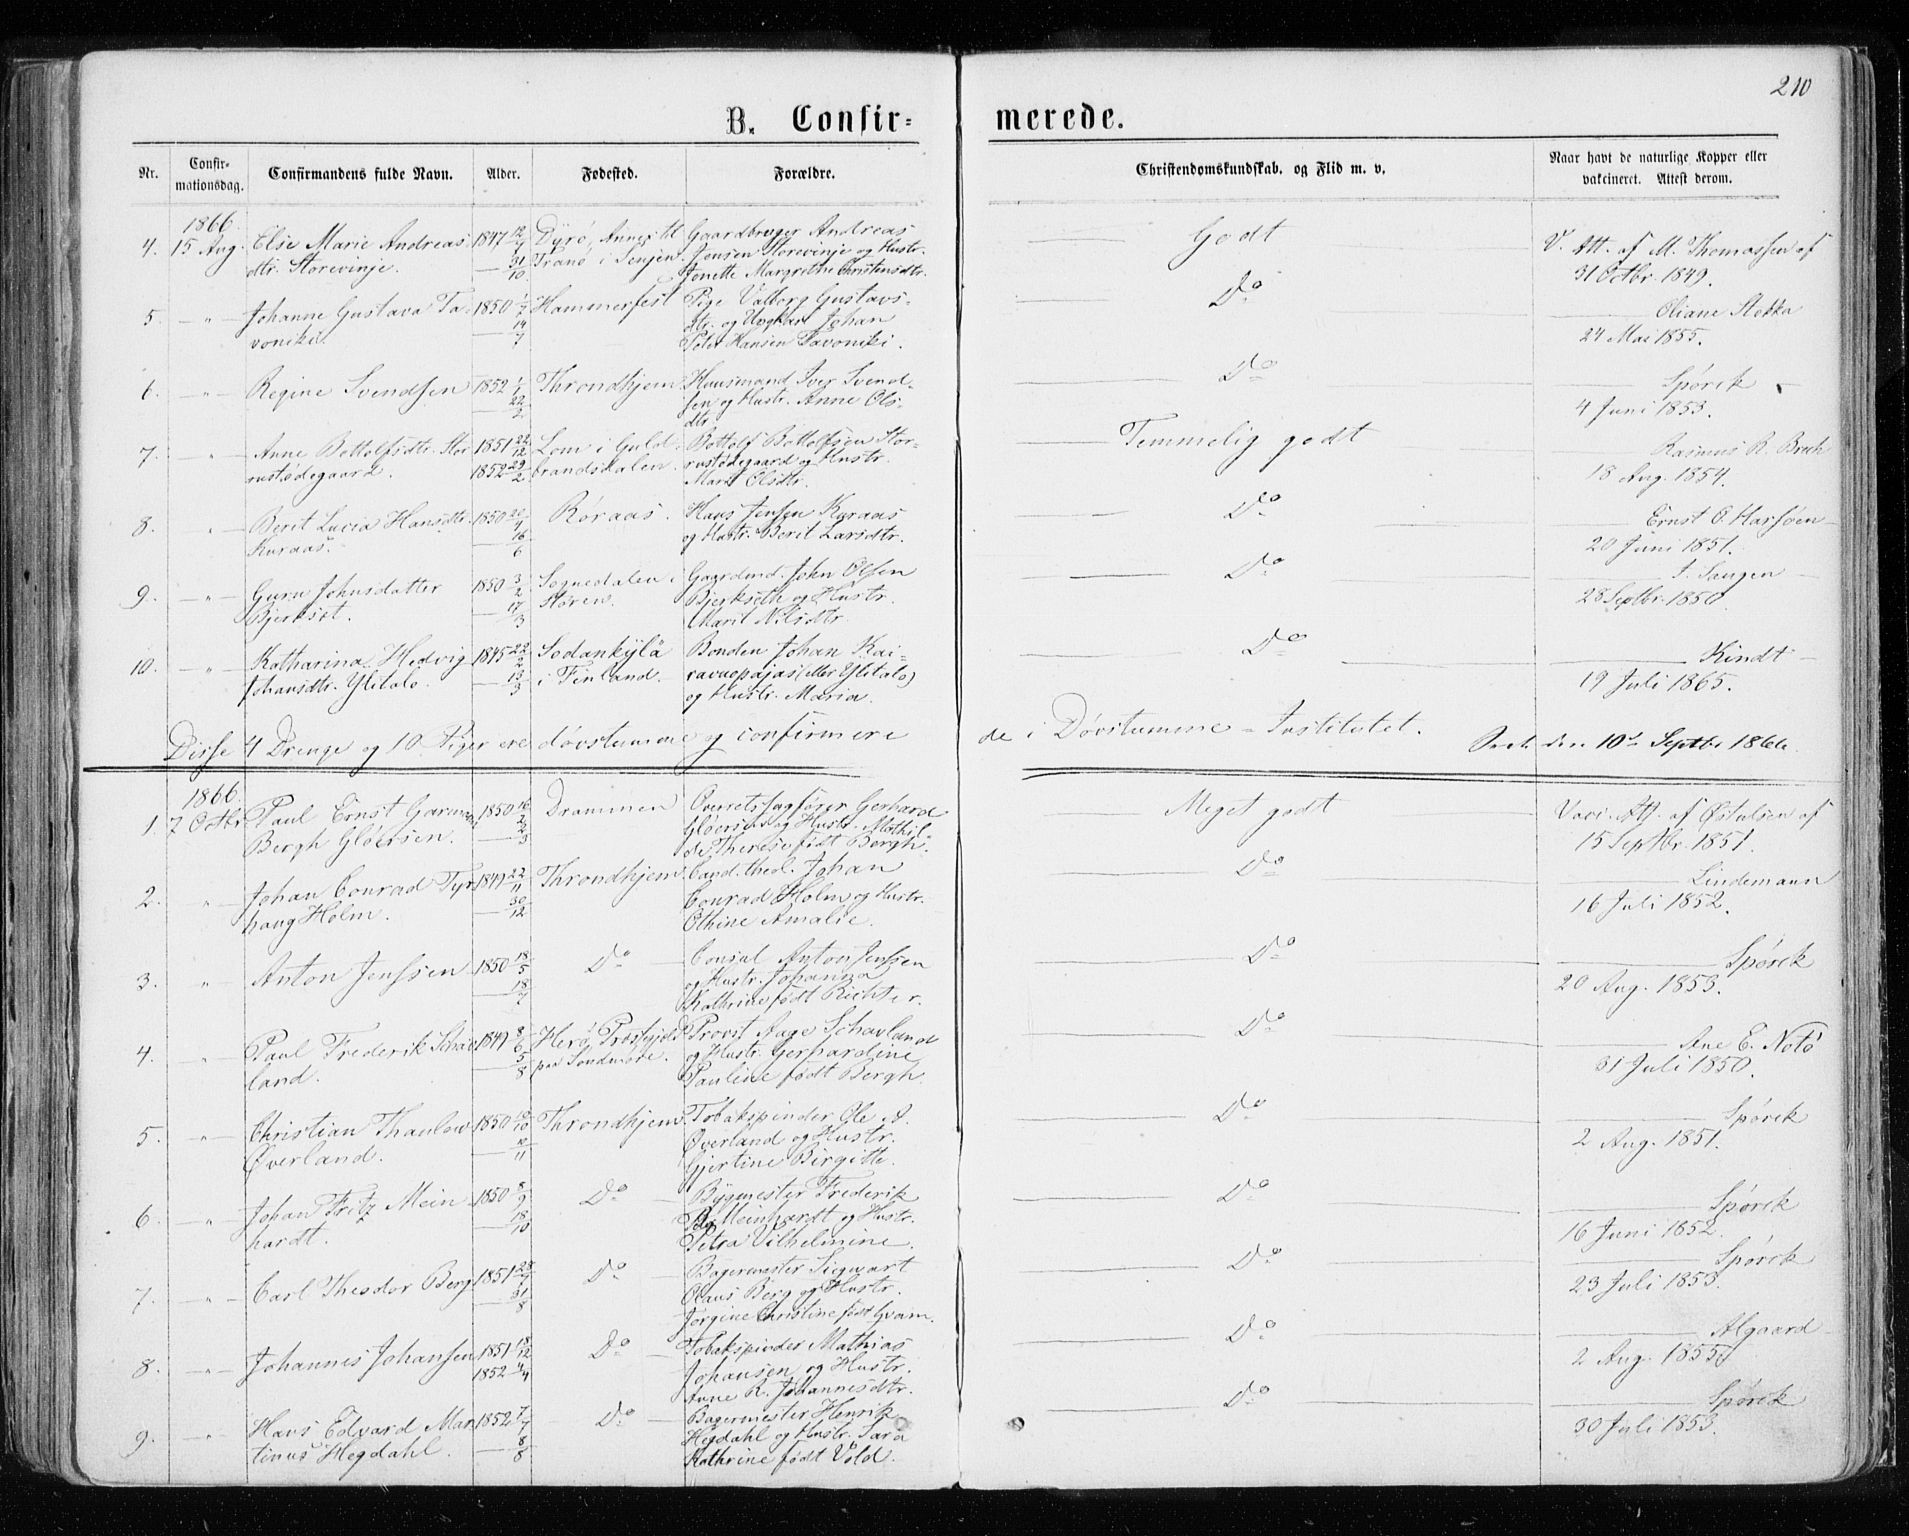 210
B. Confir- merede.
Nr. Confirmationsdag. Confirmandens fulde Navn. Alder. Fødested. Forældre. Christendomskundskab, og Flid m. v. Naar havt de naturlige Kopper eller vakcineret. Attest derom.
1866.
4. 15 Aug. Else Marie Andreas 1847 Dyrø, Annex til Gaardbruger Andreas Godt V. Att. af M. Thomassen af
dtr. Storevinje. 31/10 Tranø i Senjen. Jensen Storevinje og Hustr. 31 Octbr. 1849.
Jonette Margrethe Christensdtr.
5. -"- Johanne Gustava Ta- 1850 Hammerfest Pige Valborg Gustavs- Do Oliane Stokka
voniki. 14/7 dtr. og Ungkarl Johan 24 Mai 1855.
Peter Hansen Tavoniki.
6. -"- Regine Svendsen 1852 1/1 Throndhjem Huusmand Iver Svend- Do Spørck
22/2 sen og Hustr. Anne Ols- 4 Juni 1853.
dtr.
7. -"- Anne Bottolfsdtr. Stor 1851 22/12 Lom i Guld- Bottolf Bottolfsen Stor- Temmelig godt Rasmus R. Brech
rustødegaard. 1852 29/2 brandsdalen. rustødegaard og Hustr. 18 Aug. 1854.
Marit Olsdtr.
8. "- Berit Lucia Hansdtr. 1850 Røraas. Hans Jensen Kuraas Do Ernst O. Harsøen
Kuraas. 16/6 og Hustr. Berit Larsdtr. 20 Juni 1851.
9. -"- Guru Johnsdatter 1850 3/2 Sognedalen i Gaardmd. John Olsen Do J. Saugen
Bjerkset. 17/3 Støren. Bjerkseth og Hustr. 28 Septbr. 1850.
Marit Nilsdtr.
10. -"- Katharina Hedvig 1845 22/2 Sodankylä Bonden Johan Kai- Do Kindt
Johansdtr. Ylitalo. 13/3 i Finland. ravuopajas (eller Ylitalo) 19 Juli 1865.
og Hustr. Maria.
Disse 4 Drenge og 10 Piger ere døvstumme og confirmere de i Døvstumme-Institutet. den 10de Septbr 1866.
1866.
1. 7 Octbr. Paul Ernst Garmann 1850 16/2 Drammen Overretssagfører Gerhard Meget godt Vacc. Att. af Østulsen af
Bergh Gløersen. 2/3 Gløersen og Hustr. Mathil- 15 Septbr. 1851.
de Therese født Bergh.
2. " Johan Conrad Tyr- 1849 22/11 Throndhjem Cand. theol. Johan Do Lindemann
haug Holm. 30/12 Conrad Holm og Hustr. 16 Juli 1852.
Othine Amalie.
3. " Anton Jenssen 1850 18/5 Do Consul Anton Jenssen Do Spørck
18/7 og Hustr. Johanna 20 Aug. 1853.
Kathrine født Richter.
4. " Paul Frederik Schav- 1849 8/6 Herø Præstegjeld Provst Aage Schavland Do Ane E. Notø
land. 5/8 paa Søndmøre. og Hustr. Gerhardine 31 Juli 1850.
Pauline født Bergh.
5. -"- Christian Thaulow 1850 Throndhjem Tobakspinder Ole A. Do Spørck
Øverland. Øverland og Hustr. 2 Aug. 1851.
Gjertine Birgitte.
6. -"- Johan Fritz Mein- 1850 8/9 Do Bygmester Frederik Do Spørck
hardt. 18/10 Meinhardt og Hustr. 16 Juni 1852.
Petra Vilhelmine.
7. -"- Carl Theodor Berg 1851 Do Bagermester Sigvart Do Spørck
31/8 Olaus Berg og Hustr. 23 Juli 1853.
Jørgine Christine født Gram.
8. " Johannes Johansen 1851 18/12 Do Tobakspinder Mathias Do Algaard
1852 4/4 Johansen og Hustr. 2 Aug. 1855.
Anne R. Johannesdtr.
9. " Hans Edvard Mar- 1852 7/7 Do Bagermester Henrik Do Spørck
tinus Hegdahl. 8/8 Hegdahl og Hustr. Sara 30 Juli 1853.
Kathrine født Vold.